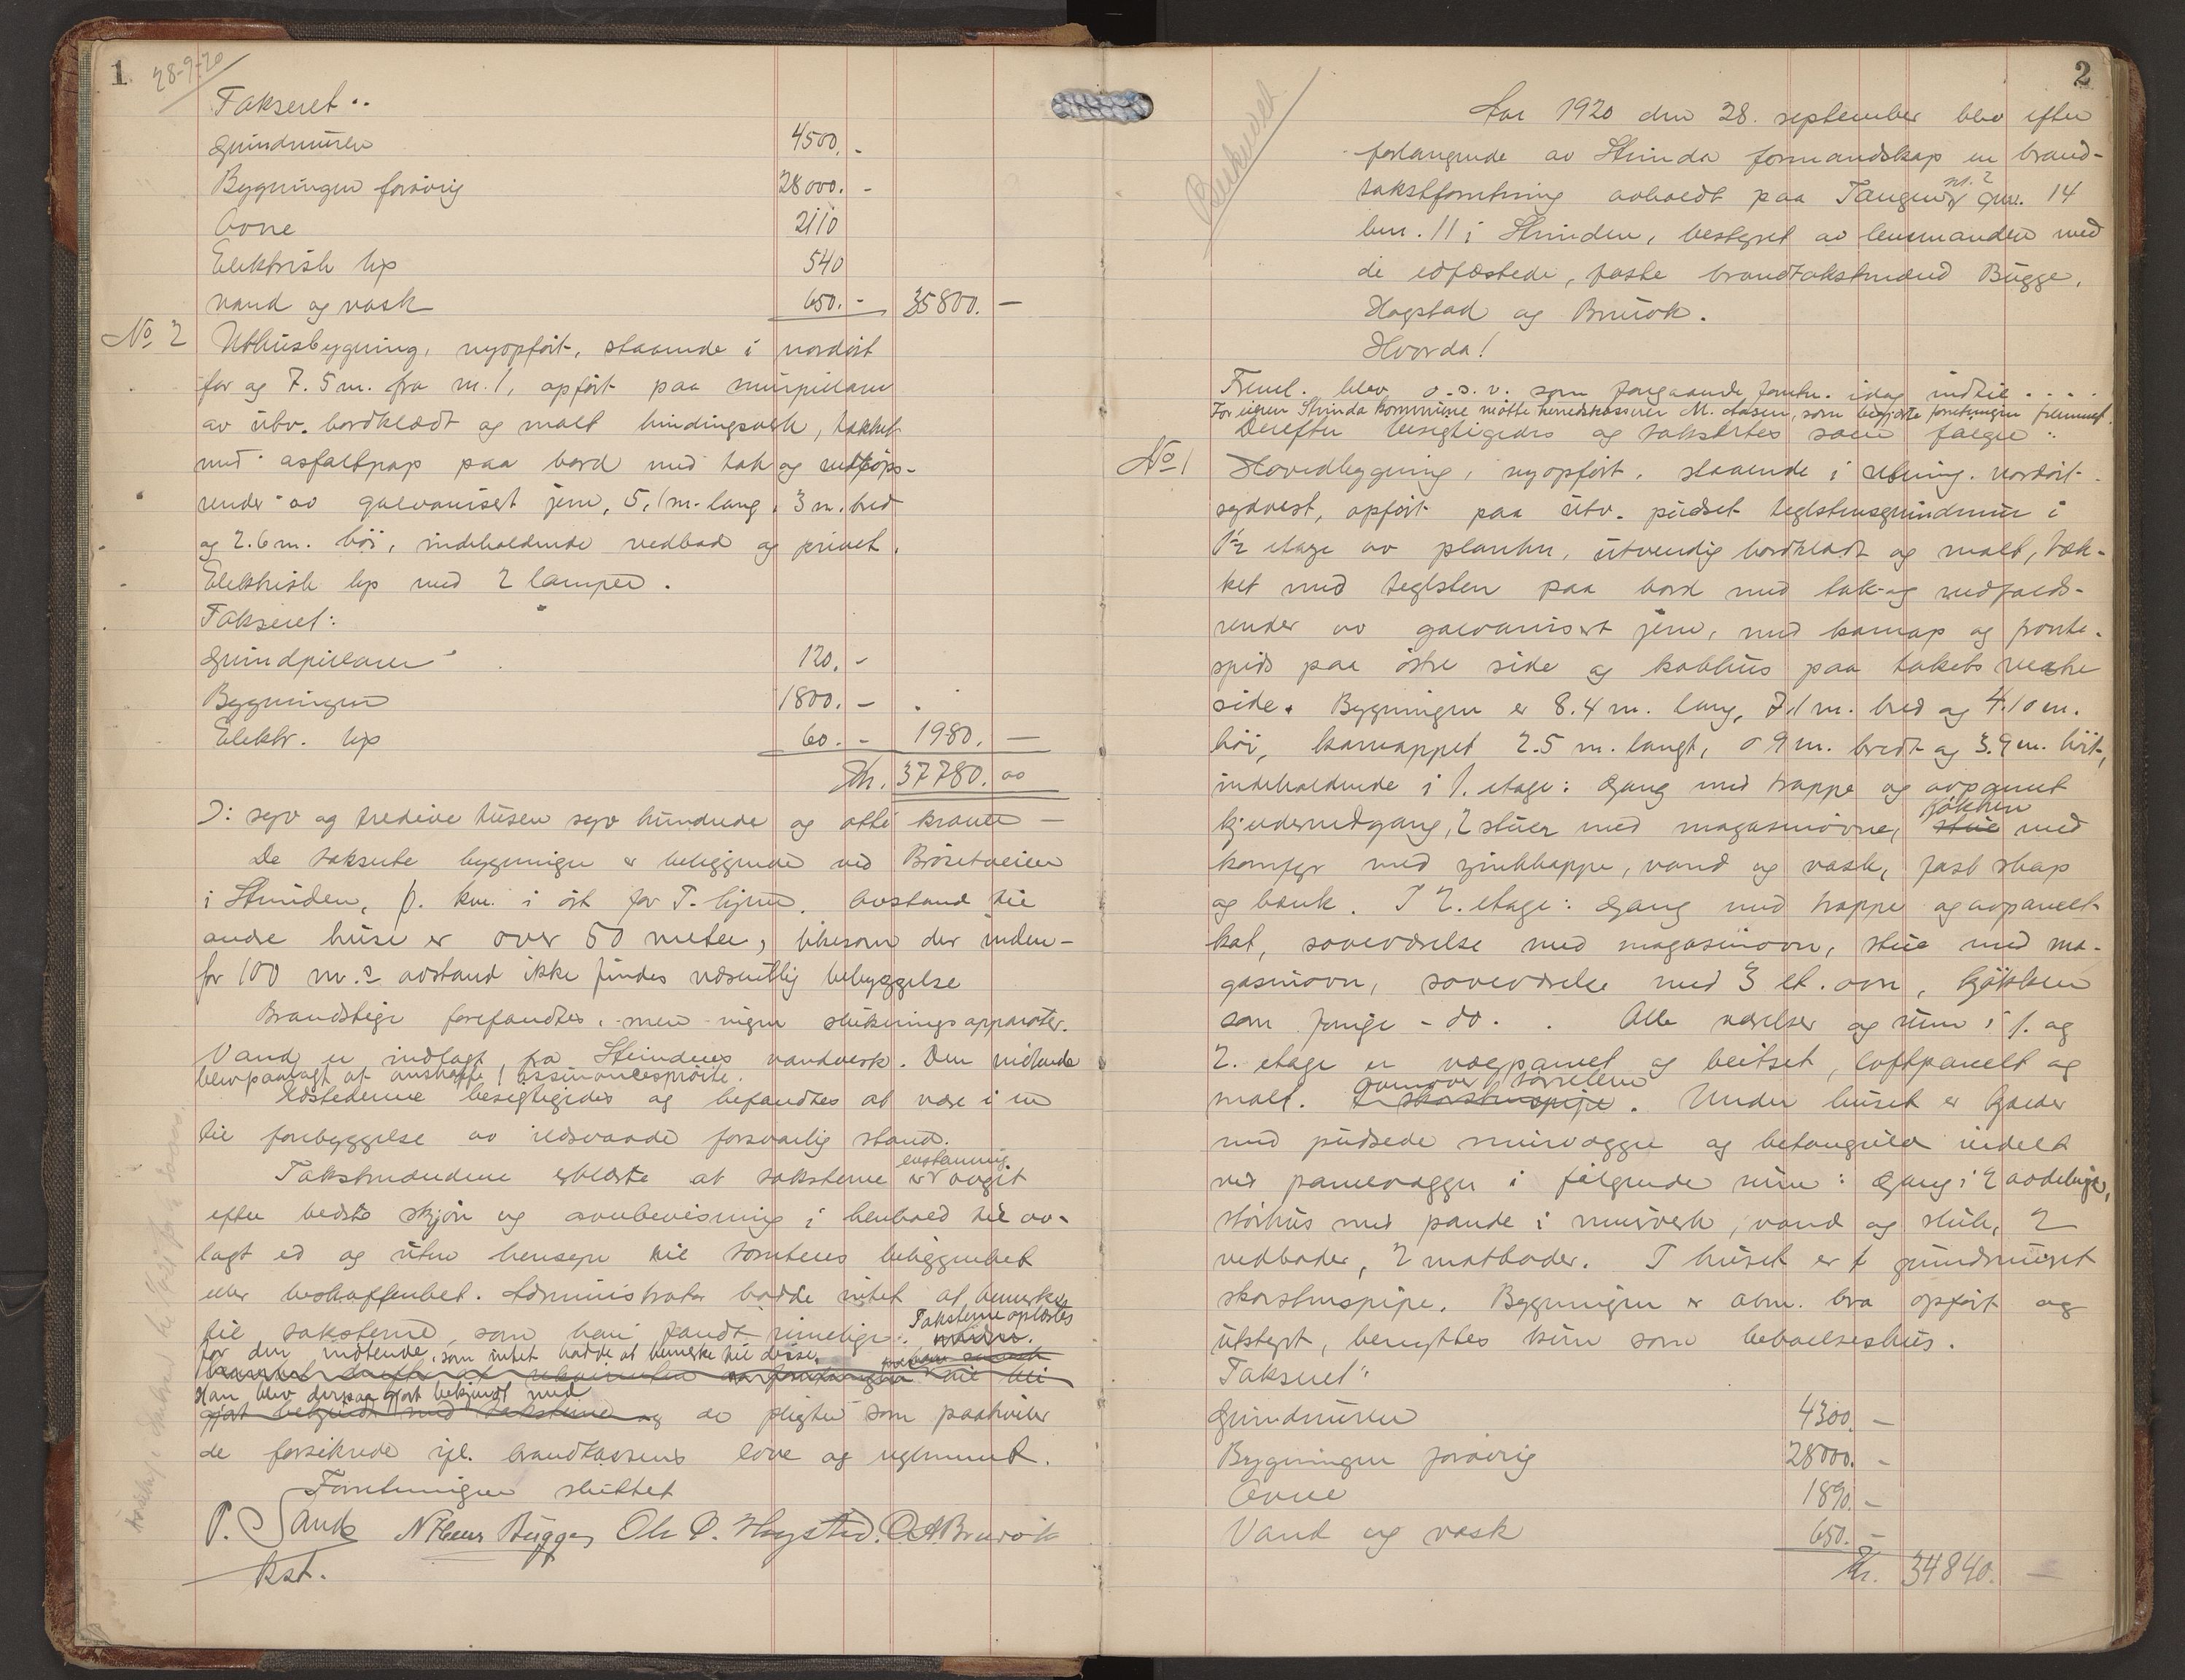 1
28-9-20
Takseret:
Grundmuren 4500.-
Bygningen forövrig 28000.-
Ovne 2110
Elektrisk lys 540
vand og vask 650.- 35800.-
No. 2 Uthusbygning, nyopfört, staaende i nordöst
for og 7.5 m. fra nr. 1, opfört paa murpillarer
av utv. bordklædt og malt bindingsverk, tækket
med asfaltpap paa bord med tak og nedlöps-
render av galvaniseret jern, 5,1 m. lang, 3 m. bred
og 2.6 m. höi, indeholdende vedbod og privet.
Elektrisk lys med 2 lamper.
Takseret:
Grundpillarer 120.-
Bygningen 1800.-
Elektr. lys 60.- 1980.-
Kr. 37780.00
ɔ: syv og tredive tusen syv hundrede og otti kroner —
De takserte bygninger er beliggende ved Brösetveien
i Strinden, km. i öst for T. hjem. Avstand til
andre huse er over 50 meter, likesom der inden-
for 100 m.s avstand ikke findes væsentlig bebyggelse
Brandstige forefandtes, men ingen slukningsapparater.
Vand er indlagt fra Strindens vandverk. Den mötende
blev paalagt at anskaffe 1 assurancespröite.
Ildstederne besigtigedes og befandtes at være i en
til forebyggelse av ildsvaade forsvarlig stand.
Takstmændene erklærte at taksterne er enstemmig avgit
efter bedste skjön og overbevisning i henhold til av-
lagt ed og uten hensyn til tomtens beliggenhet
eller beskaffenhet. Administrator hadde intet at bemerke
til taksterne, som han fandt rimelige. Taksterne oplæstes
for den mötende, som intet hadde at bemerke til disse.
Han blev derpaa gjort bekjendt med
de pligter som paahviler
de forsikrede ifl. brandkassens love og reglement.
Forretningen sluttet
P. Sand N Heur Bugge, Ole P. Hogstad. O. A. Bruvok
kst.
2
Aar 1920 den 28. september blev efter
forlangende av Strinda formandskap en brand-
takstforretning avholdt paa Tangen nr. 2 gnr. 14
bnr. 11 i Strinden, bestyret av lensmanden med
de edfæstede, faste brandtakstmænd Bugge,
Hogstad og Bruvok.
Hvorda!
Freml. blev o.s.v. som foregaaende forretn. idag indtil....
For eieren Strinda kommune mötte herredskasserer M. Aasen, som begjærte forretningen fremmet.
Derefter besigtigedes og takstertes som fölger:
No. 1 Hovedbygning, nyopfört, staaende i retning nordöst-
sydvest, opfört paa utv. pudset teglstensgrundmur i
1½ etage av planker, utvendig bordklædt og malt, tæk-
ket med teglsten paa bord med tak- og nedfalds-
render av galvaniseret jern, med karnap og fronte-
spids paa östre side og kobhus paa takets vestre
side. Bygningen er 8.4 m. lang, 7.1 m. bred og 4.10 m.
höi, karnappet 2.5 m. langt, 0 9 m. bredt og 3.9 m. höit,
indeholdende i 1. etage: Gang med trappe og avpanelt
kjeldernedgang, 2 stuer med magasinovne, kjökken med
komfyr med zinkkappe, vand og vask, fast skap
og bænk. I 2. etage: Gang med trappe og avpanelt
kot, soveværelse med magasinovn, stue med ma-
gasinovn, soveværelse med 3 et. ovn, kjökken
som forrige - do. Alle værelser og rum i 1. og
2. etage er vægpanelt og beitset, loftpanelt og
malt. Ovenover 1 törreloft. Under huset er kjælder
med pudsede murvægge og betongulv indelt
ved panelvægger i fölgende rum: Gang i 2 avdelinger,
störhus med pande i murverk, vand og sluk, 2
vedboder, 2 matboder. I huset er 1 grundmuret
skorstenspipe. Bygningen er alm. bra opfört og
utstyrt, benyttes kun som beboelseshus.
Takseret:
Grundmuren 4300.-
Bygningen forövrig 28000.-
Ovne 1890.-
Vand og vask 650.-
Kr. 34840.-